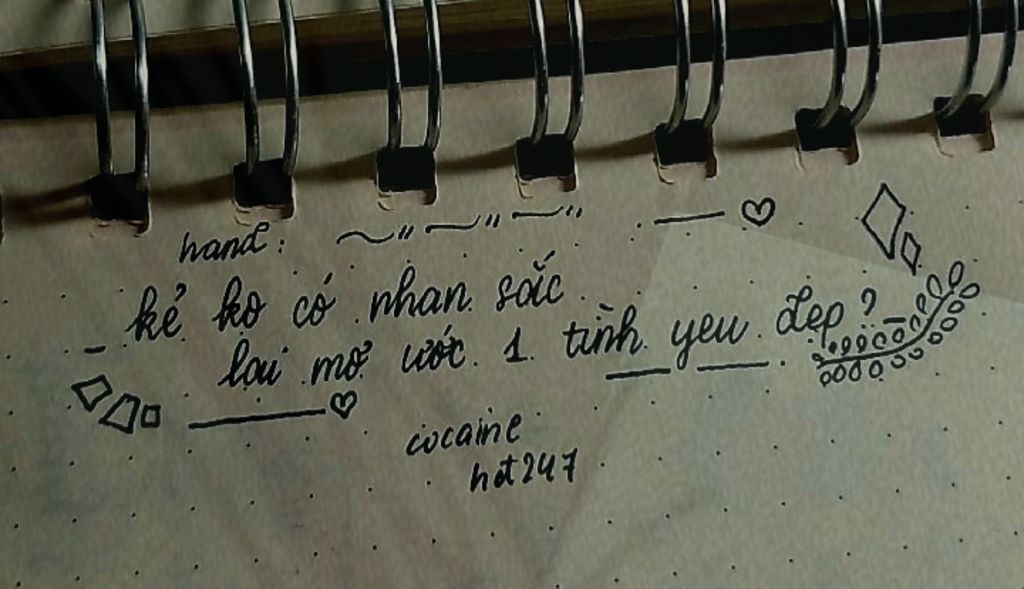 hand:
kẻ ko có nhan sắc
lại mơ ước 1 tình yeu đẹp?
cocaine
hot247